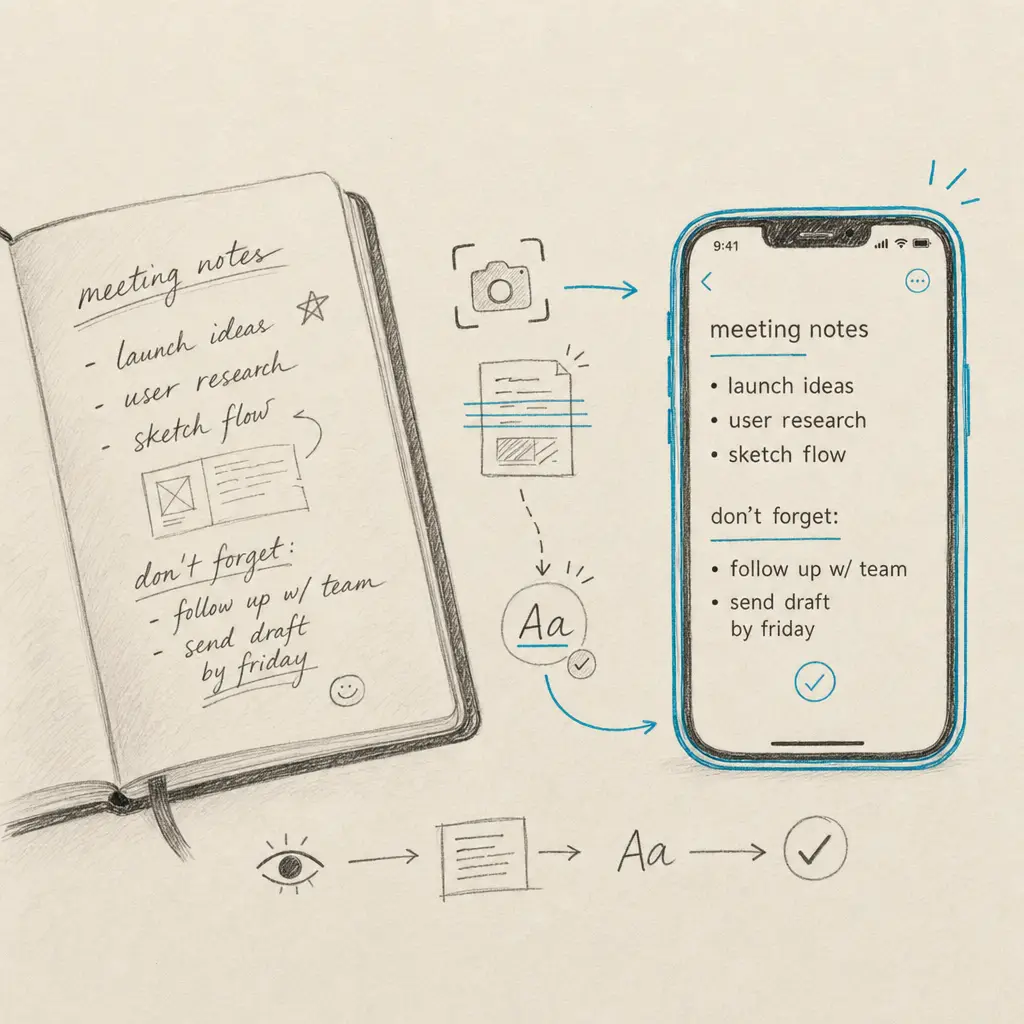 meeting notes
- launch ideas
- user research
- sketch flow
don't forget:
- follow up w/ team
- send draft
by friday
Aa
9:41
meeting notes
• launch ideas
• user research
• sketch flow
don't forget:
• follow up w/ team
• send draft
by friday
Aa